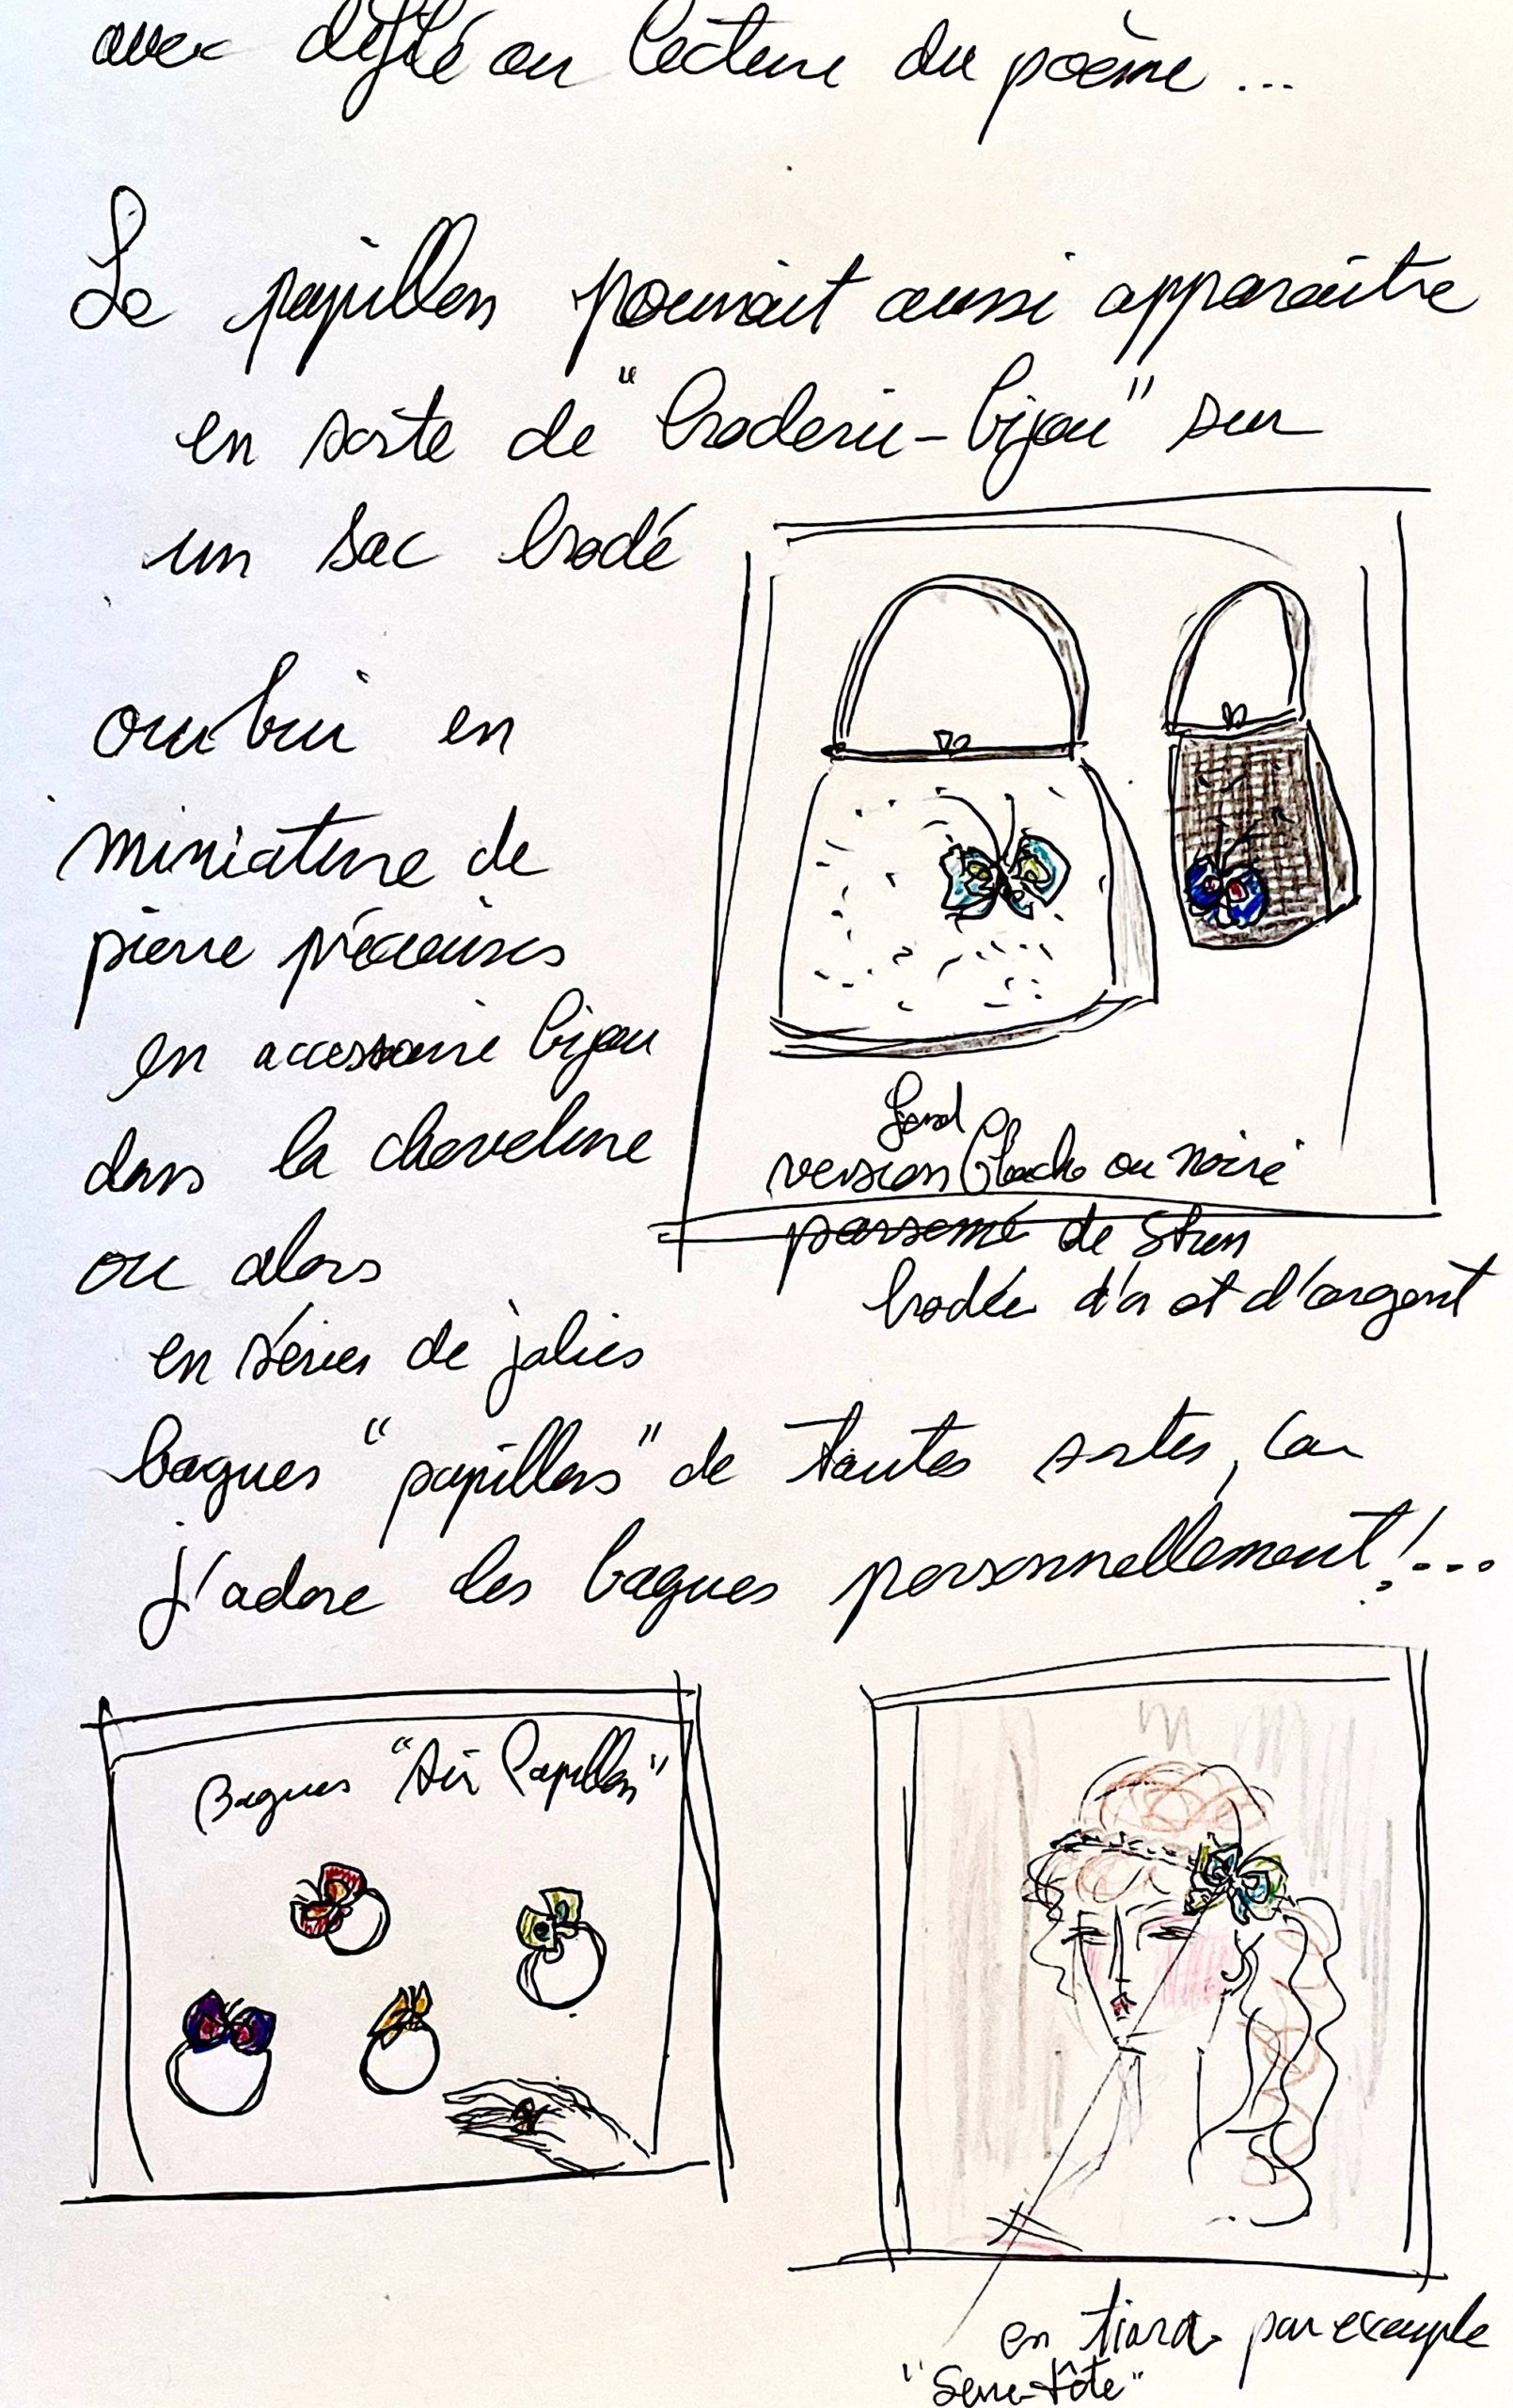 avec défilé ou lecture du poème...
Le papillon pourrait aussi apparaître
en sorte de "broderie-bijou" sur
un sac brodé
ou bien en
miniature de
pierre précieuses
en accessoire bijou
dans la chevelure
ou alors
en séries de jolies
bagues "papillons" de toutes sortes, car
j'adore les bagues personnellement!...
fond
version blache ou noire
parsemé de
brodée d'or et d'argent
Bagues "Air Papillon"
en tiara par exemple
"Serre-tête"